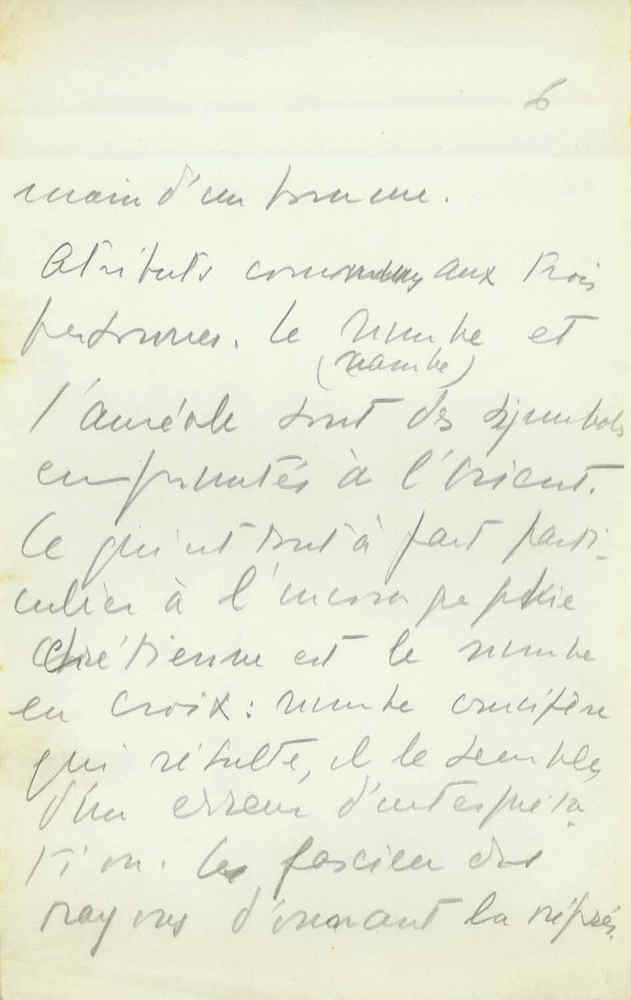 6
main d'un homme.
Atributs communs aux trois
personnes. Le nimbe et
(nambe)
l'auréole sont des symbols
empruntés à l'Orient.
Ce qui est tout à fait parti-
culier à l'iconographie
chrétienne est le nimbe
en croix : nimbe crucifère
qui résulte, il le semble,
d'un erreur d'interpréta
tion. Les fascicu des
rayons d'onnant la réprés.